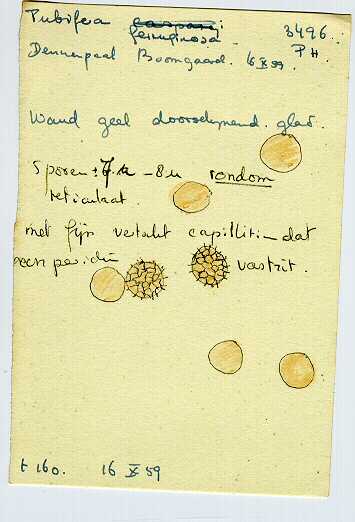 Tubifera ~~caspari~~ 3496
ferruginosa PH
Dennenpaal Boomgaard. 16 X 59
Wand geel doorschijnend. glad.
Sporen ± 7 u - 8 u rondom
reticulaat.
met fijn vertakt capillitium dat
peridie vastzit.
t 160. 16 X 59